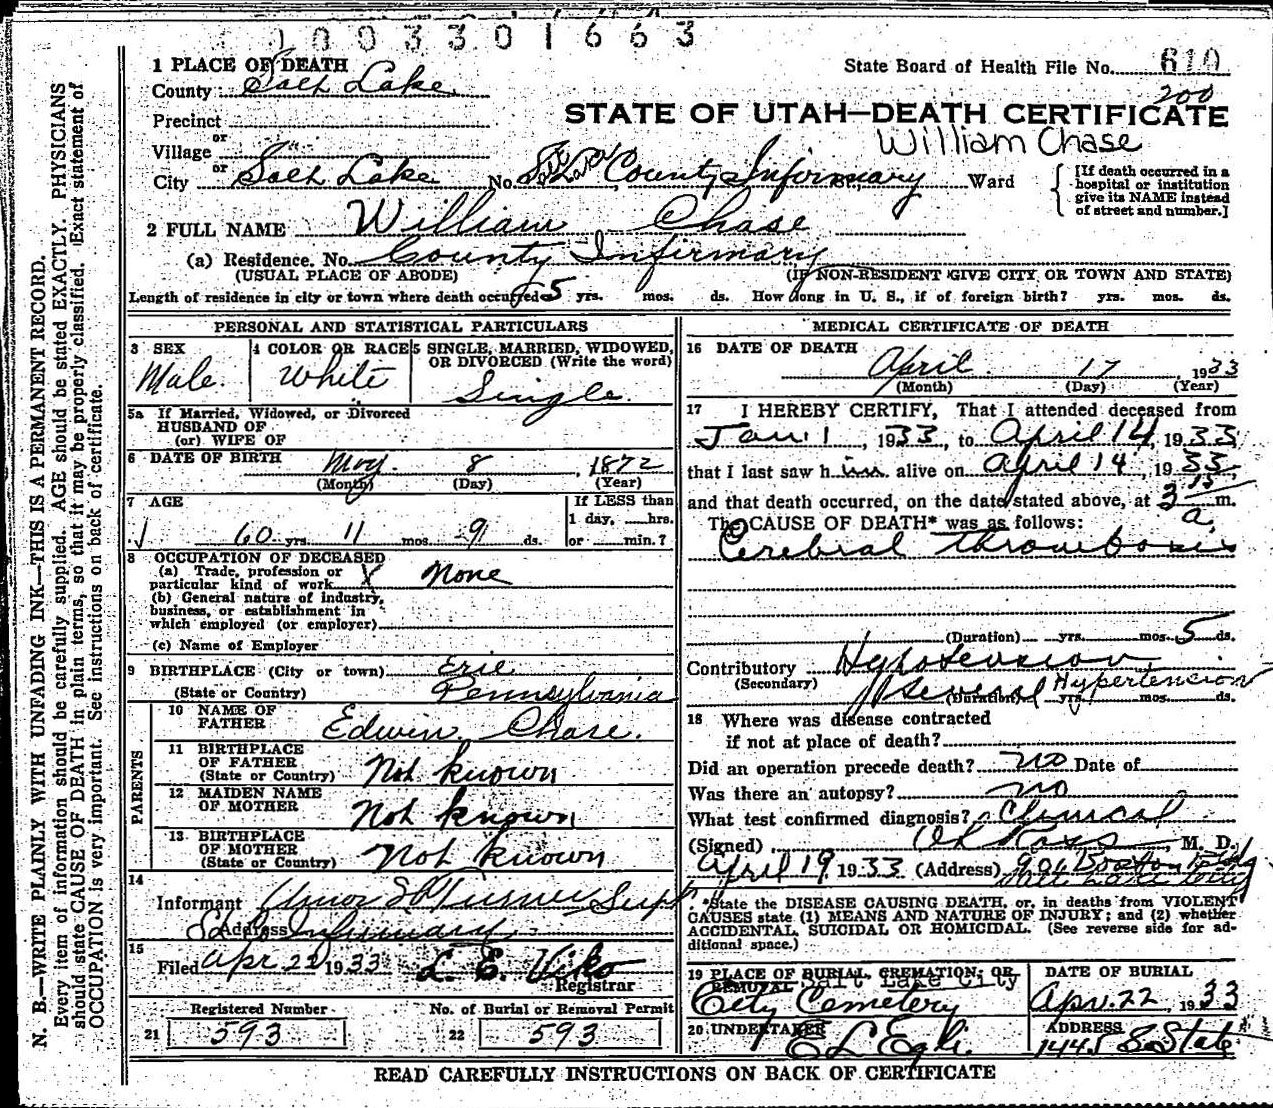 1 0 0 3 3 0 1 6 6 3
1 PLACE OF DEATH
State Board of Health File No. 610
200
County Salt Lake
STATE OF UTAH—DEATH CERTIFICATE
William Chase
Precinct
or
Village
or
City Salt Lake No. County Infirmary St., Ward
[If death occurred in a hospital or institution give its NAME instead of street and number.]
2 FULL NAME William Chase
(a) Residence. No. County Infirmary
(USUAL PLACE OF ABODE) (IF NON-RESIDENT GIVE CITY OR TOWN AND STATE)
Length of residence in city or town where death occurred 5 yrs. mos. ds. How long in U. S., if of foreign birth? yrs. mos. ds.
PERSONAL AND STATISTICAL PARTICULARS
3 SEX
Male.
4 COLOR OR RACE
White
5 SINGLE, MARRIED, WIDOWED, OR DIVORCED (Write the word)
Single.
5a If Married, Widowed, or Divorced
HUSBAND OF
(or) WIFE OF
6 DATE OF BIRTH May 8, 1872
(Month) (Day) (Year)
7 AGE
60 yrs 11 mos. 9 ds.
If LESS than
1 day, hrs.
or min.?
8 OCCUPATION OF DECEASED
(a) Trade, profession or
particular kind of work X None
(b) General nature of industry,
business, or establishment in
which employed (or employer)
(c) Name of Employer
9 BIRTHPLACE (City or town) Erie
(State or Country) Pennsylvania
PARENTS
10 NAME OF
FATHER Edwin Chase.
11 BIRTHPLACE
OF FATHER
(State or Country) Not known
12 MAIDEN NAME
OF MOTHER Not known
13 BIRTHPLACE
OF MOTHER
(State or Country) Not known
14
Informant Turner Supt
Address Infirmary
15
Filed Apr 22 1933 L. E. Viko
Registrar
Registered Number
21 593
No. of Burial or Removal Permit
22 593
MEDICAL CERTIFICATE OF DEATH
16 DATE OF DEATH
April 17, 1933
(Month) (Day) (Year)
17 I HEREBY CERTIFY, That I attended deceased from
Jan. 1, 1933, to April 14, 1933
that I last saw him alive on April 14, 1933
and that death occurred, on the date stated above, at 3 15 a. m.
The CAUSE OF DEATH* was as follows:
Cerebral thrombosis
(Duration) yrs. mos. 5 ds.
Contributory Hypotension
(Secondary) Hypertencion
Several
(Duration) yrs. mos. ds.
18 Where was disease contracted
if not at place of death?
Did an operation precede death? no Date of
Was there an autopsy? no
What test confirmed diagnosis? Clinical
(Signed) , M. D.
April 19 1933 (Address) Boston Bldg
Salt Lake City
*State the DISEASE CAUSING DEATH, or, in deaths from VIOLENT
CAUSES state (1) MEANS AND NATURE OF INJURY; and (2) whether
ACCIDENTAL, SUICIDAL OR HOMICIDAL. (See reverse side for ad-
ditional space.)
19 PLACE OF BURIAL, CREMATION, OR
REMOVAL Salt Lake City
City Cemetery
DATE OF BURIAL
Apr. 22, 1933
20 UNDERTAKER
E L Egli.
ADDRESS
1445 S State
READ CAREFULLY INSTRUCTIONS ON BACK OF CERTIFICATE
N. B.—WRITE PLAINLY WITH UNFADING INK—THIS IS A PERMANENT RECORD.
Every item of information should be carefully supplied. AGE should be stated EXACTLY. PHYSICIANS
should state CAUSE OF DEATH in plain terms, so that it may be properly classified. Exact statement of
OCCUPATION is very important. See instructions on back of certificate.